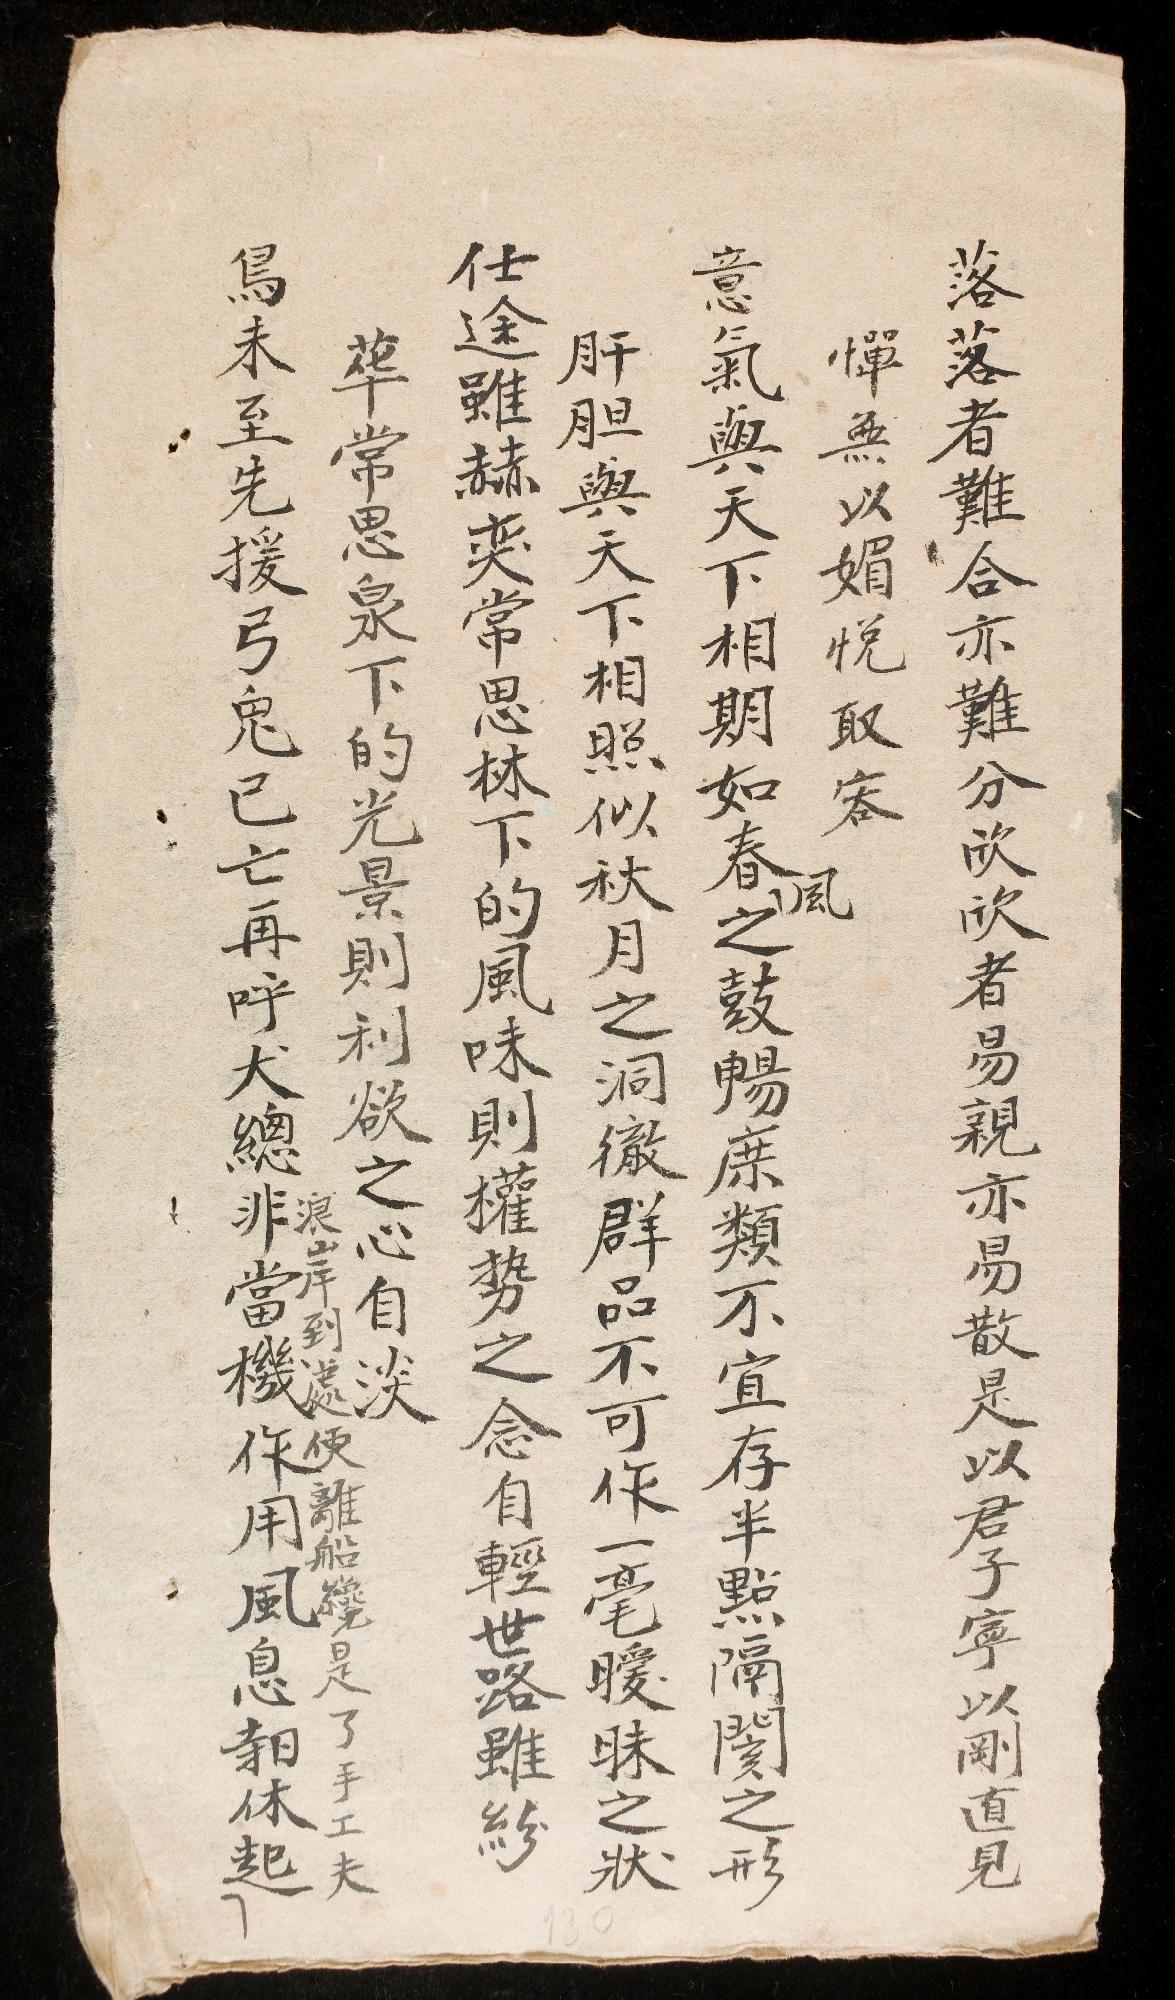 落落者難合亦難分欣欣者易親亦易散是以君子寧以剛直見
憚無以媚悅取容
意氣與天下相期如春風之鼓暢庶類不宜存半點隔閡之形
肝胆與天下相照似秋月之洞徹群品不可作一毫曖昧之狀
仕途雖赫奕常思林下的風味則權勢之念自輕世路雖紛
華常思泉下的光景則利欲之心自淡
鳥未至先援弓兔已亡再呼犬總非當機作用風息朝休起
浪岸到處便離船纔是了手工夫
130